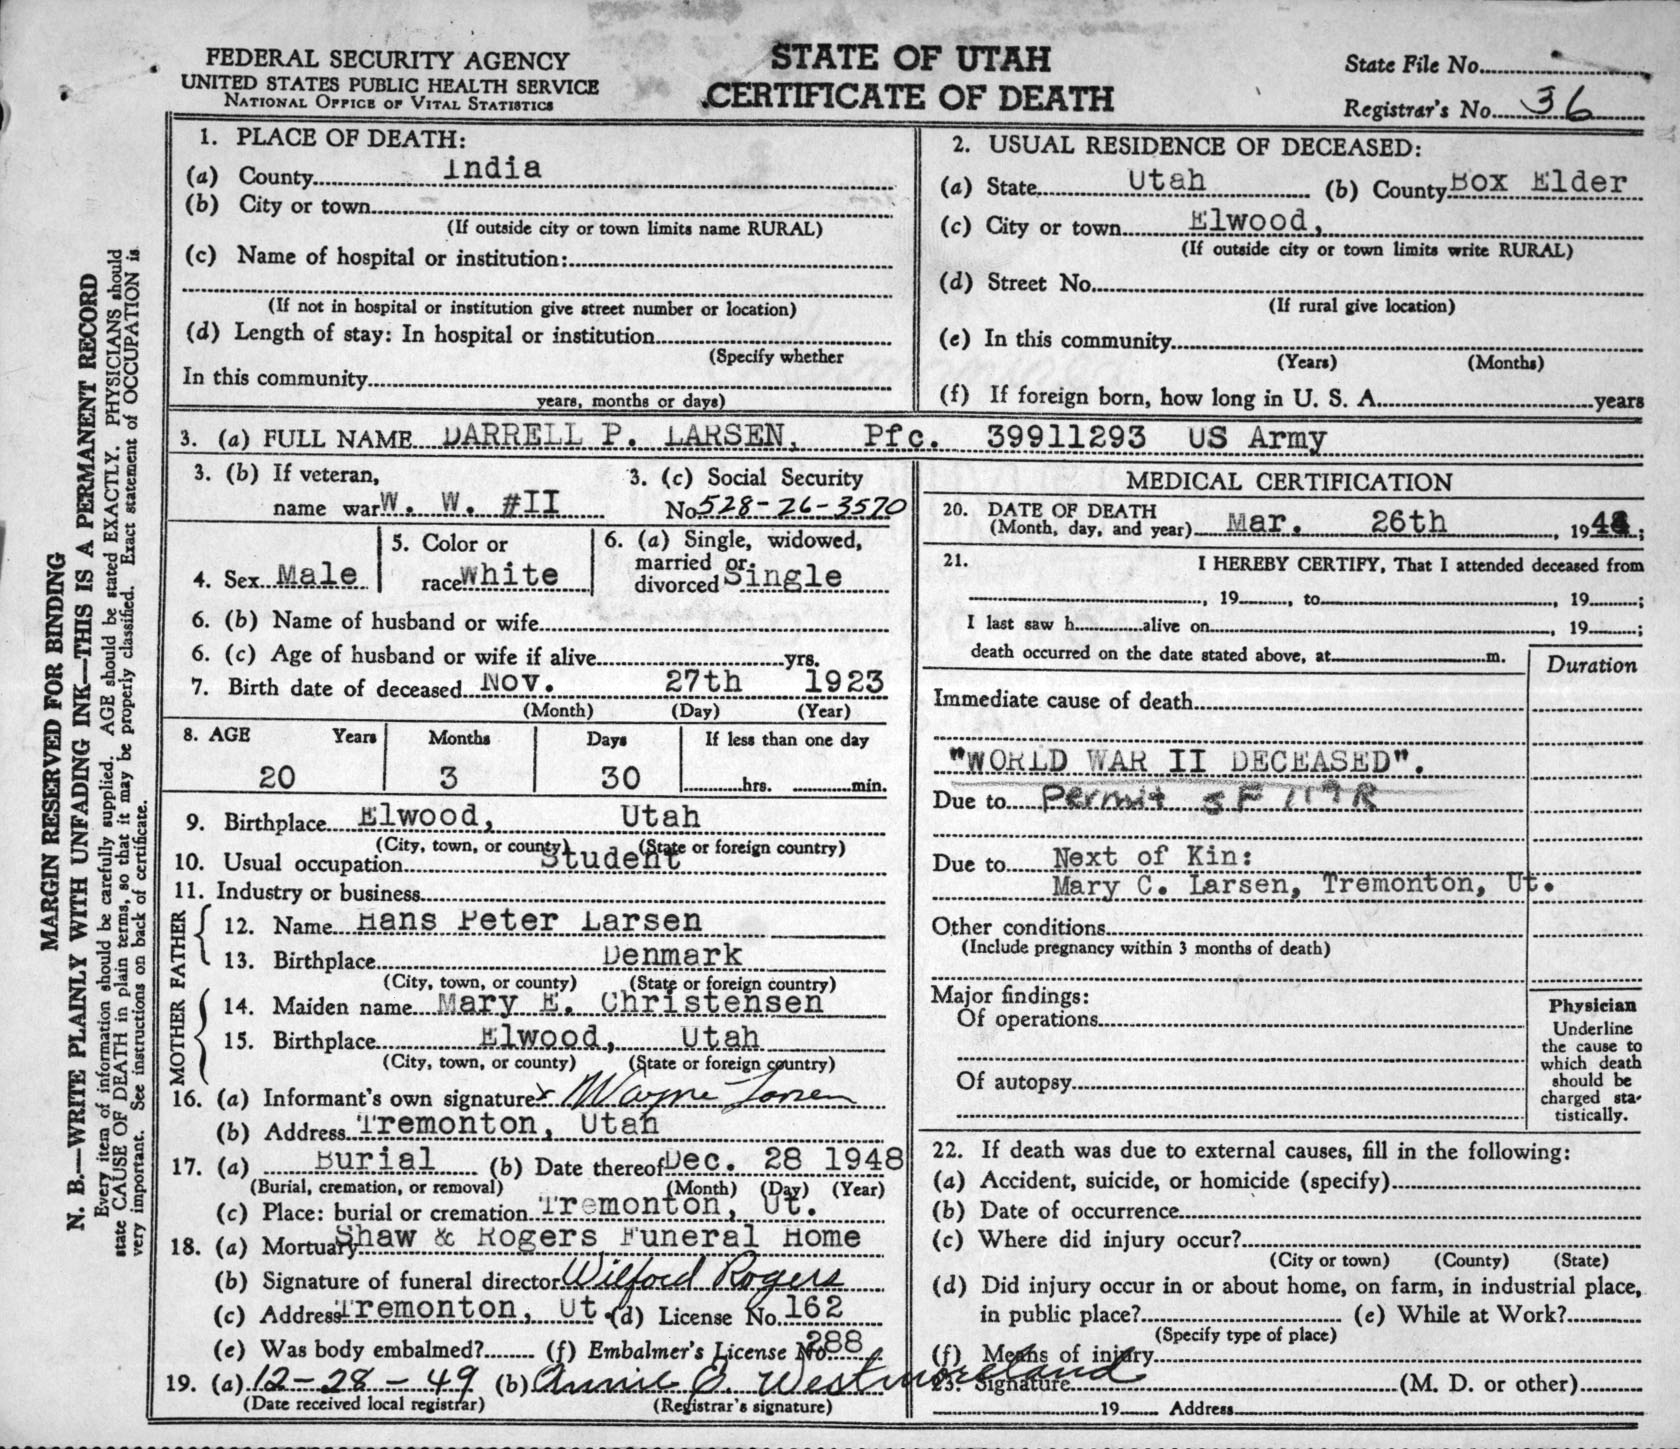 FEDERAL SECURITY AGENCY
UNITED STATES PUBLIC HEALTH SERVICE
NATIONAL OFFICE OF VITAL STATISTICS
STATE OF UTAH
CERTIFICATE OF DEATH
State File No.
Registrar's No. 36
MARGIN RESERVED FOR BINDING
N. B.—WRITE PLAINLY WITH UNFADING INK—THIS IS A PERMANENT RECORD
Every item of information should be carefully supplied. AGE should be stated EXACTLY. PHYSICIANS should
state CAUSE OF DEATH in plain terms, so that it may be properly classified. Exact statement of OCCUPATION is
very important. See instructions on back of certificate.
1. PLACE OF DEATH:
(a) County India
(b) City or town
(If outside city or town limits name RURAL)
(c) Name of hospital or institution:
(If not in hospital or institution give street number or location)
(d) Length of stay: In hospital or institution
(Specify whether
In this community
years, months or days)
2. USUAL RESIDENCE OF DECEASED:
(a) State Utah (b) County Box Elder
(c) City or town Elwood,
(If outside city or town limits write RURAL)
(d) Street No.
(If rural give location)
(e) In this community
(Years) (Months)
(f) If foreign born, how long in U. S. A. years
3. (a) FULL NAME DARRELL P. LARSEN, Pfc. 39911293 US Army
3. (b) If veteran,
name war W. W. #II
3. (c) Social Security
No. 528-26-3570
4. Sex Male
5. Color or
race White
6. (a) Single, widowed,
married or
divorced Single
6. (b) Name of husband or wife
6. (c) Age of husband or wife if alive yrs.
7. Birth date of deceased Nov. 27th 1923
(Month) (Day) (Year)
8. AGE Years Months Days If less than one day
20 3 30 hrs. min.
9. Birthplace Elwood, Utah
(City, town, or county) (State or foreign country)
10. Usual occupation Student
11. Industry or business
FATHER
12. Name Hans Peter Larsen
13. Birthplace Denmark
(City, town, or county) (State or foreign country)
MOTHER
14. Maiden name Mary E. Christensen
15. Birthplace Elwood, Utah
(City, town, or county) (State or foreign country)
16. (a) Informant's own signature x Wayne Larsen
(b) Address Tremonton, Utah
17. (a) Burial (b) Date thereof Dec. 28 1948
(Burial, cremation, or removal) (Month) (Day) (Year)
(c) Place: burial or cremation Tremonton, Ut.
18. (a) Mortuary Shaw & Rogers Funeral Home
(b) Signature of funeral director Wilford Rogers
(c) Address Tremonton, Ut. (d) License No. 162
(e) Was body embalmed? (f) Embalmer's License No. 288
19. (a) 12-28-49 (b) Annie E. Westmoreland
(Date received local registrar) (Registrar's signature)
MEDICAL CERTIFICATION
20. DATE OF DEATH
(Month, day, and year) Mar. 26th, 1944;
21. I HEREBY CERTIFY, That I attended deceased from
, 19 , to , 19 ;
I last saw h alive on , 19 ;
death occurred on the date stated above, at m.
Duration
Immediate cause of death
"WORLD WAR II DECEASED".
Due to Permit SF 119R
Due to Next of Kin:
Mary C. Larsen, Tremonton, Ut.
Other conditions
(Include pregnancy within 3 months of death)
Major findings:
Of operations
Of autopsy
Physician
Underline
the cause to
which death
should be
charged sta-
tistically.
22. If death was due to external causes, fill in the following:
(a) Accident, suicide, or homicide (specify)
(b) Date of occurrence
(c) Where did injury occur?
(City or town) (County) (State)
(d) Did injury occur in or about home, on farm, in industrial place,
in public place? (e) While at Work?
(Specify type of place)
(f) Means of injury
23. Signature (M. D. or other)
19 Address